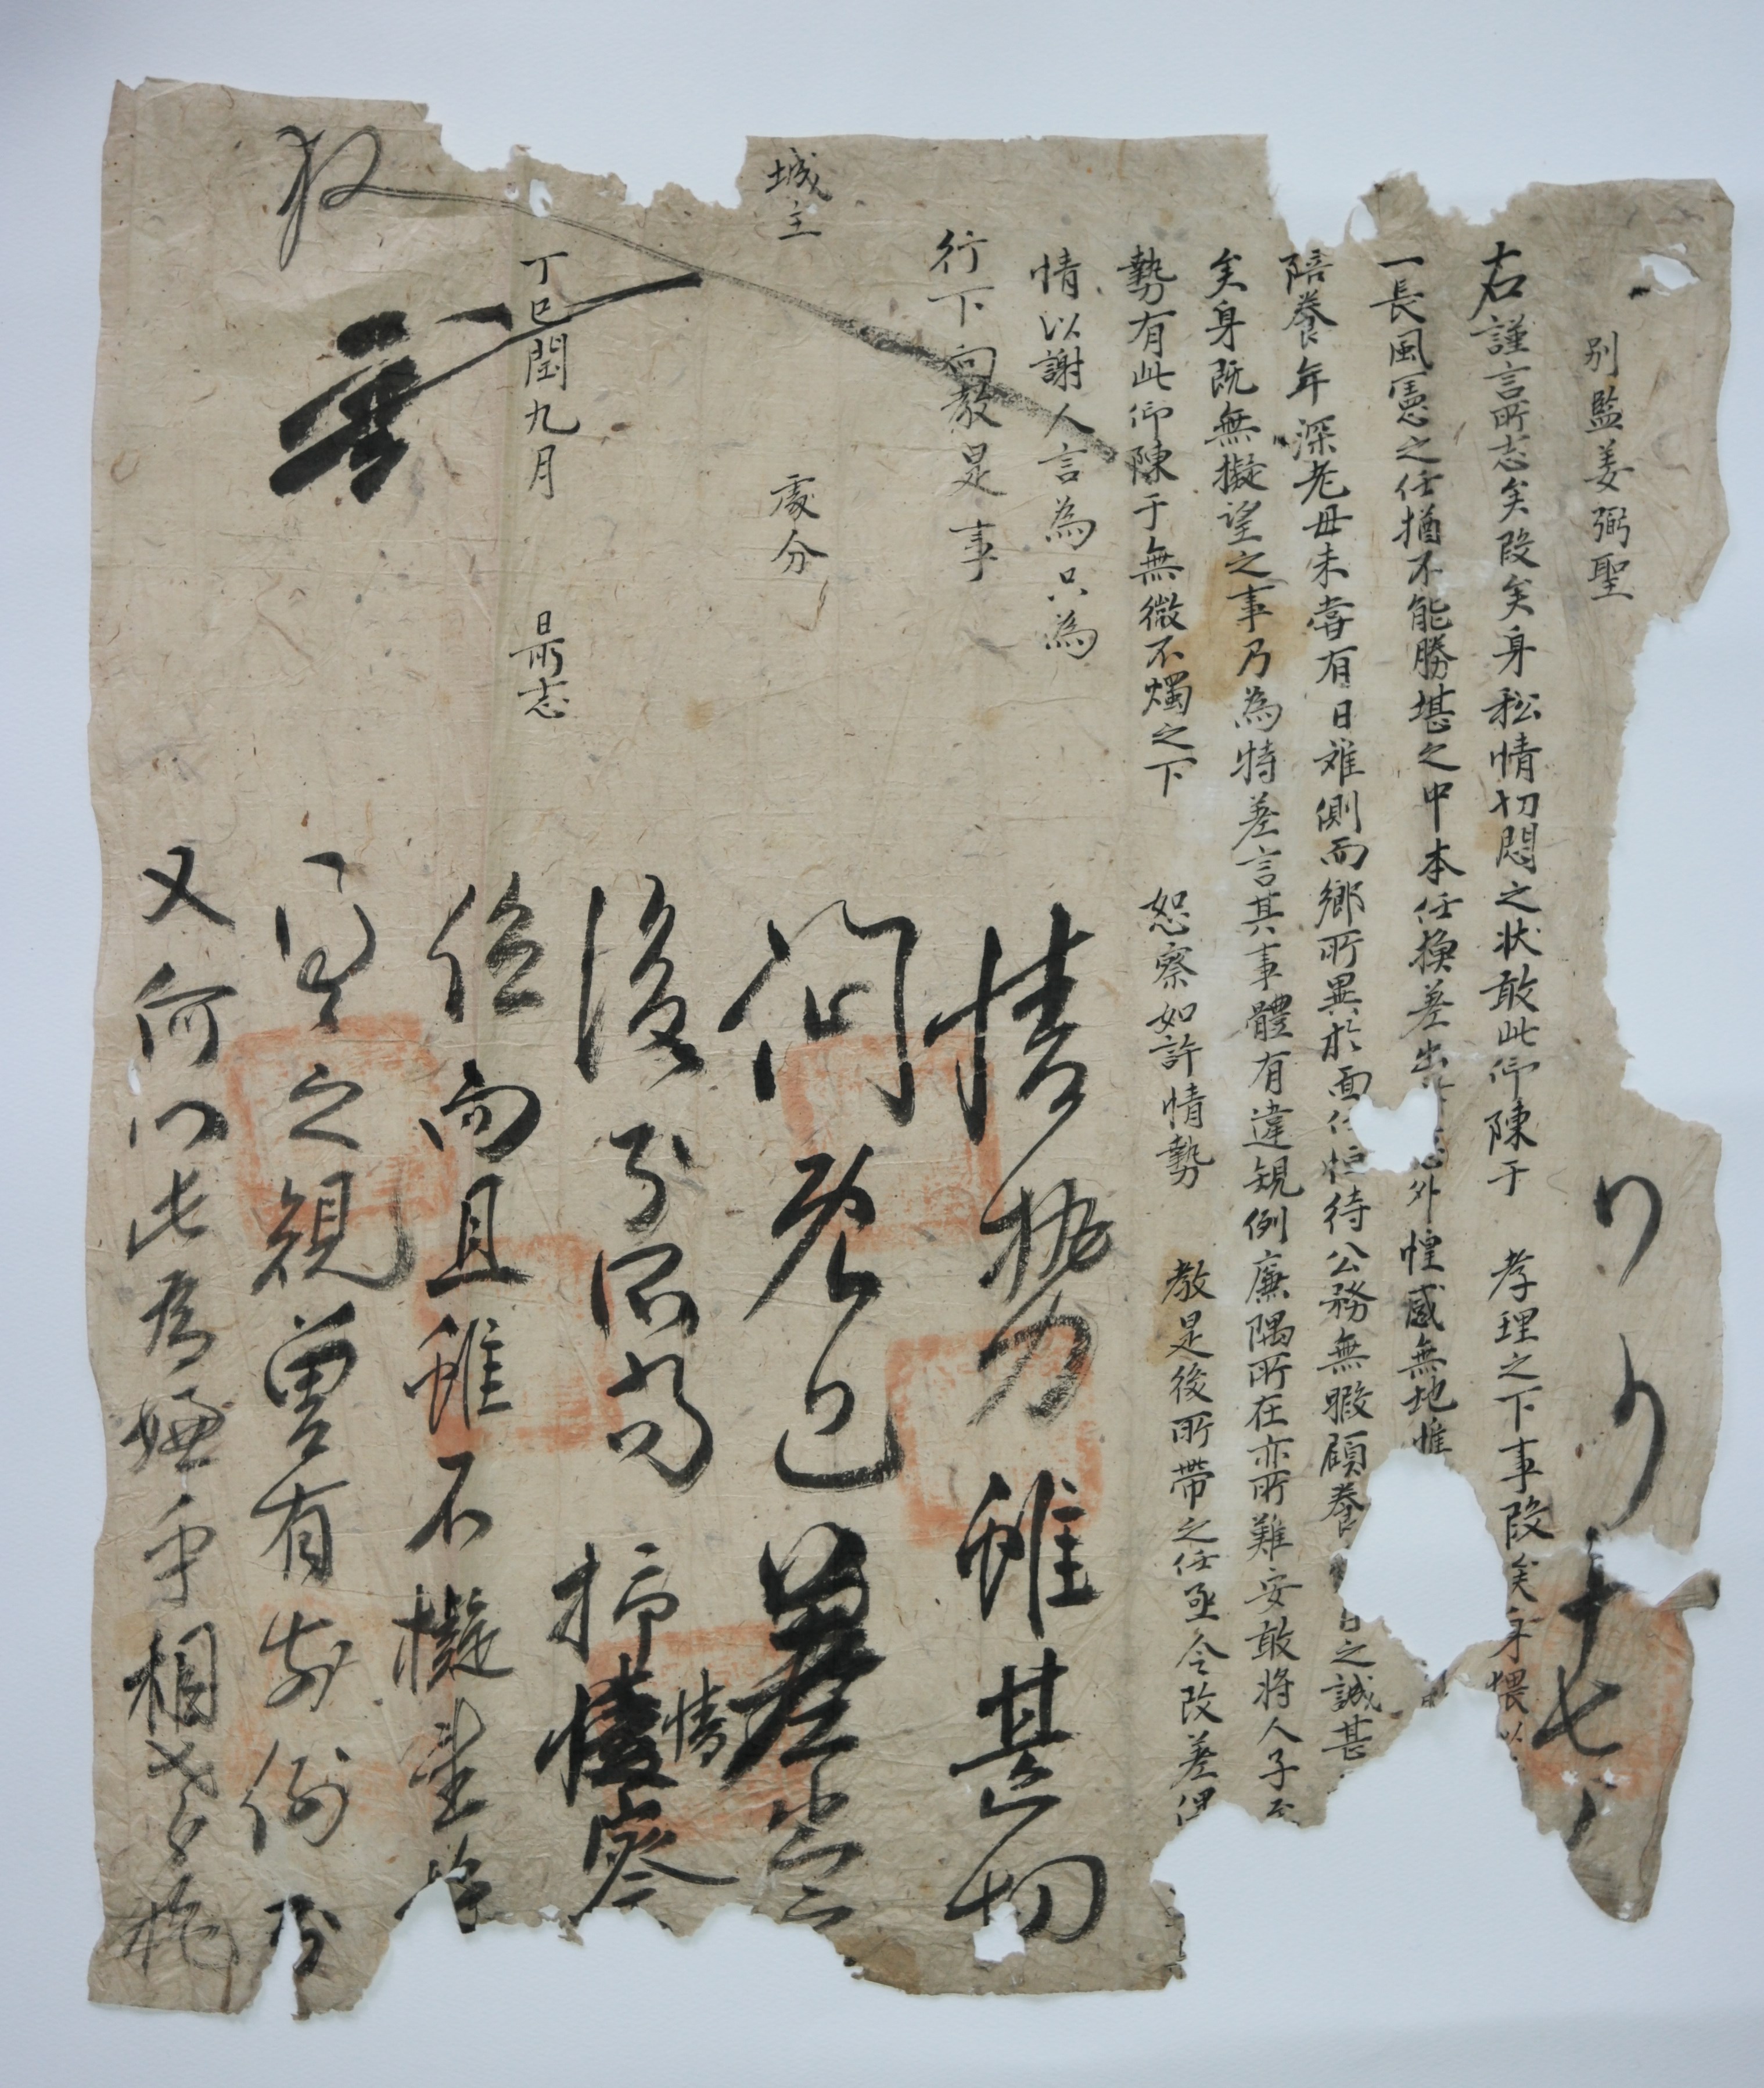 別監姜弼聖
右謹言所志矣段矣身私情切悶之狀敢此仰陳于 孝理之下事段矣身猥以
一長風憲之任猶不能勝堪之中本任換差出 外惶感無地惟
陪養年深老母未嘗有日難側而鄉所異於面任恒待公務無暇顧養 日之誠甚
矣身旣無擬望之事乃為特差言其事體有違規例廉隅所在亦所難安敢將人子至
勢有此仰陳于無微不燭之下 恕察如許情勢 敎是後所帶之任亟令改差俾
情以謝人言為只為
行下向敎是事
城主 處分
丁巳閏九月 日所志
情勢雖甚切
悶旣已差出
後分同尚 捄情察
任而且雖不擬望
之規曾有前例
又何以此為嫌乎相考
十七